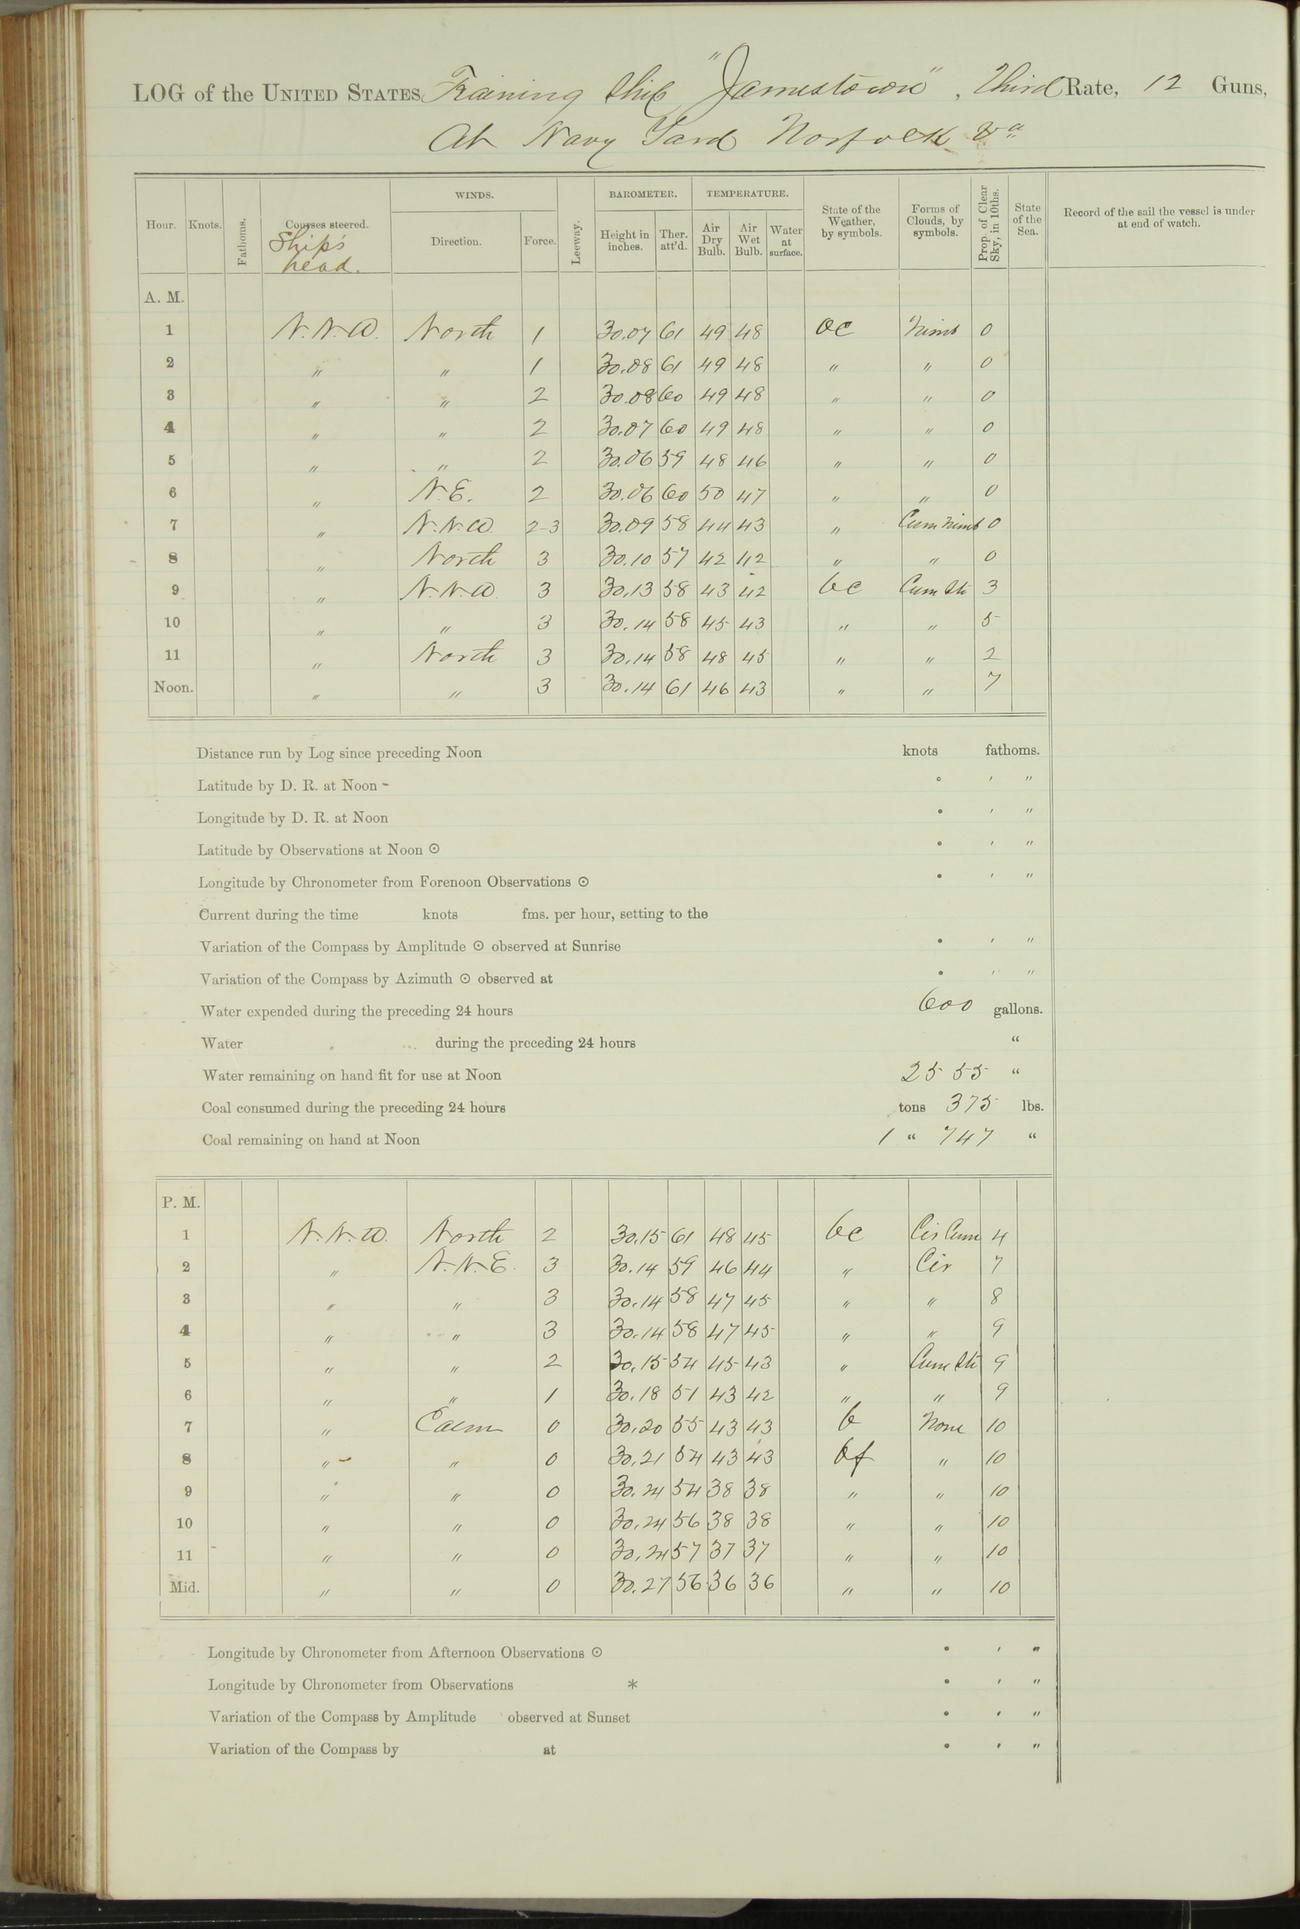 LOG of the UNITED STATES Training Ship "Jamestown", Third Rate, 12 Guns,
At Navy Yard Norfolk Va
Hour. Knots. Fathoms. Courses steered. Ship's head. WINDS. Direction. Force. Leeway. BAROMETER. Height in inches. Ther. att'd. TEMPERATURE. Air Dry Bulb. Air Wet Bulb. Water at surface. State of the Weather, by symbols. Forms of Clouds, by symbols. Prop. of Clear Sky, in 10ths. State of the Sea. Record of the sail the vessel is under at end of watch.
A. M.
1 N.N.W. North 1 30.07 61 49 48 oc Nimb 0
2 " " 1 30.08 61 49 48 " " 0
3 " " 2 30.08 60 49 48 " " 0
4 " " 2 30.07 60 49 48 " " 0
5 " " 2 30.06 59 48 46 " " 0
6 " N.E. 2 30.06 60 50 47 " " 0
7 " N.N.W. 2-3 30.09 58 44 43 " Cum Nimb 0
8 " North 3 30.10 57 42 42 " " 0
9 " N.N.W. 3 30.13 58 43 42 bc Cum Str 3
10 " " 3 30.14 58 45 43 " " 5
11 " North 3 30.14 58 48 45 " " 2
Noon. " " 3 30.14 61 46 43 " " 7
Distance run by Log since preceding Noon knots fathoms.
Latitude by D. R. at Noon - ° ' "
Longitude by D. R. at Noon ° ' "
Latitude by Observations at Noon ☉ ° ' "
Longitude by Chronometer from Forenoon Observations ☉ ° ' "
Current during the time knots fms. per hour, setting to the
Variation of the Compass by Amplitude ☉ observed at Sunrise ° ' "
Variation of the Compass by Azimuth ☉ observed at ° ' "
Water expended during the preceding 24 hours 600 gallons.
Water during the preceding 24 hours "
Water remaining on hand fit for use at Noon 2555 "
Coal consumed during the preceding 24 hours tons 375 lbs.
Coal remaining on hand at Noon 1 " 747 "
P. M.
1 N.N.W. North 2 30.15 61 48 45 bc Cir Cum 4
2 " N.N.E. 3 30.14 59 46 44 " Cir 7
3 " " 3 30.14 58 47 45 " " 8
4 " " 3 30.14 58 47 45 " " 9
5 " " 2 30.15 54 45 43 " Cum Str 9
6 " " 1 30.18 51 43 42 " " 9
7 " Calm 0 30.20 55 43 43 b None 10
8 " " 0 30.21 54 43 43 bf " 10
9 " " 0 30.24 54 38 38 " " 10
10 " " 0 30.24 56 38 38 " " 10
11 " " 0 30.24 57 37 37 " " 10
Mid. " " 0 30.27 56 36 36 " " 10
Longitude by Chronometer from Afternoon Observations ☉ ° ' "
Longitude by Chronometer from Observations * ° ' "
Variation of the Compass by Amplitude observed at Sunset ° ' "
Variation of the Compass by at ° ' "